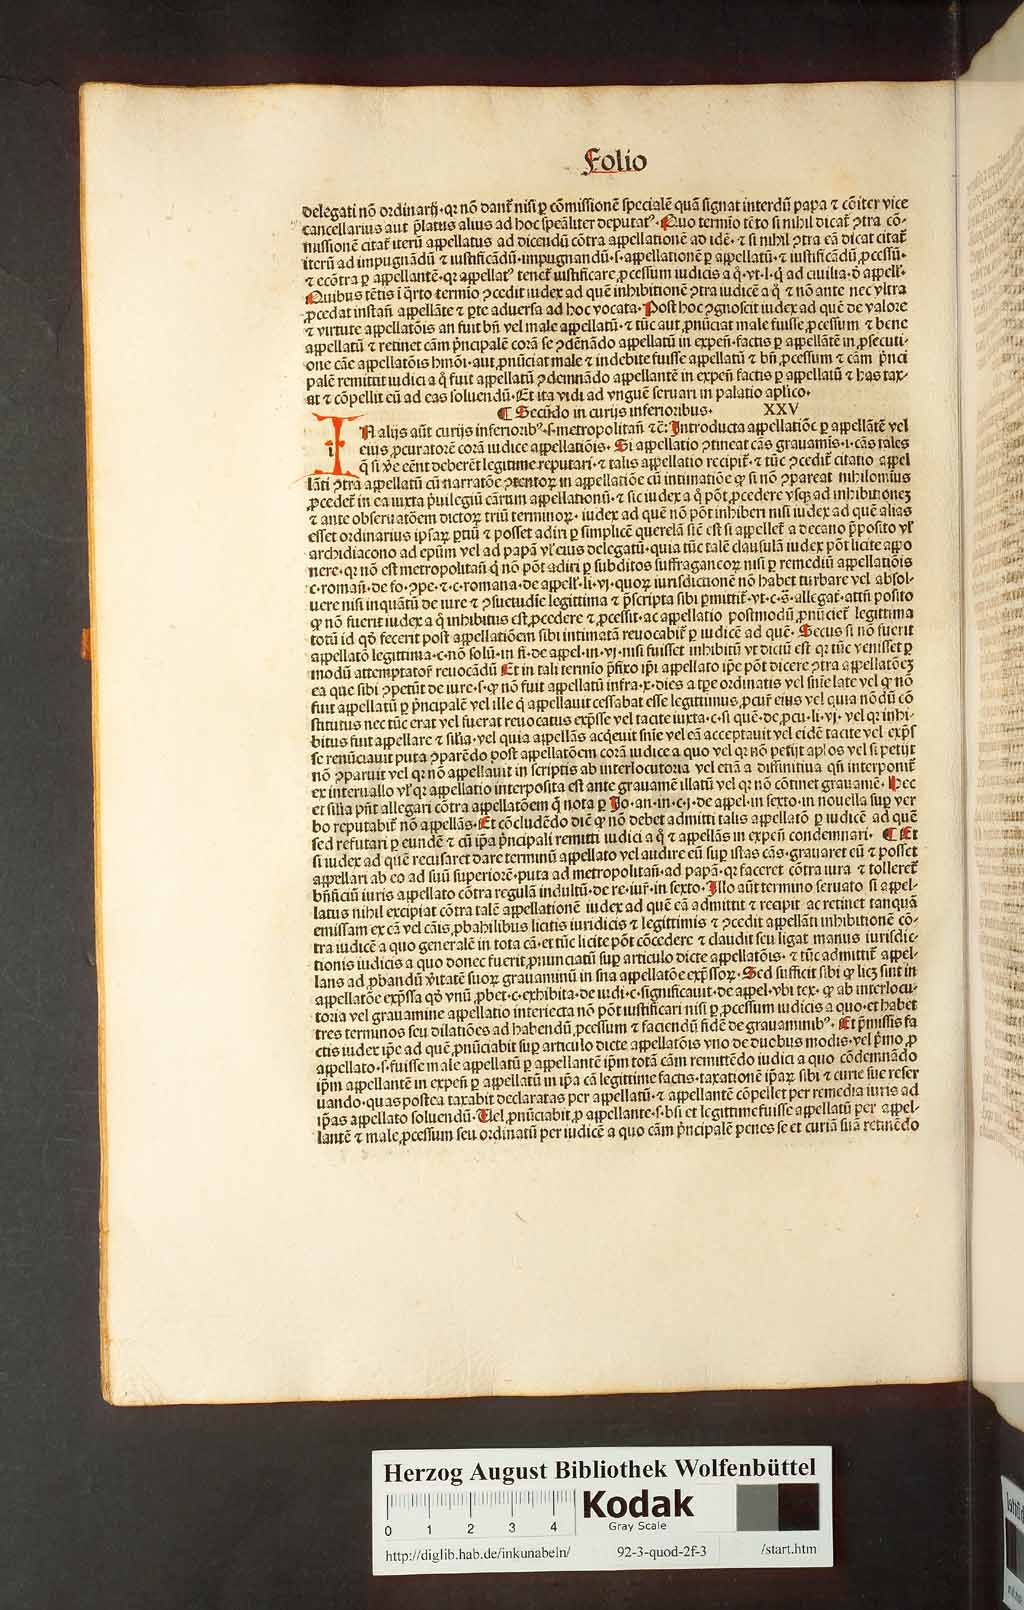 Folio
delegati nō ordinarij·qꝛ nō dant̄ nisi ꝑ cōmissionē specialē quā signat interdū papa ⁊ cōiter vice
cancellarius aut p̄latus alius ad hoc spēaliter deputatꝰ·Quo termīo tēto si nihil dicat̄ ꝯtra cō-
missionē citat̄ iterū appellatus ad dicendū cōtra appellationē ad idē·⁊ si nihil ꝯtra eā dicat citat̄
iterū ad impugnādū ⁊ iustificādū·impugnandū·s·appellationē ꝑ appellatū·⁊ iustificādū ꝓcessū·
⁊ ecōtra ꝑ appellantē·qꝛ appellatꝰ tenet̄ iustificare ꝓcessum iudicis a q̄·vt·l·q̄ ad ciuilia·d̄ appell̄·
Quibus tētis ī q̄rto termīo ꝯcedit iudex ad quē inhibitionē ꝯtra iudicē a q̄ ⁊ nō ante nec vltra
ꝓcedat instan̄ appellāte ⁊ ꝑte aduersa ad hoc vocata·Post hoc ꝯgnoscit iudex ad quē de valore
⁊ virtute appellatōis an fuit bn̄ vel male appellatū·⁊ tūc aut ꝓnūciat male fuisse ꝓcessum ⁊ bene
appellatū ⁊ retinet cām p̄ncipalē corā se ꝯdēnādo appellatū in expen̄·factis ꝑ appellātē in ꝓsecuti-
one cāe appellatōis hmōi·aut ꝓnūciat male ⁊ indebite fuisse appellatū ⁊ bn̄ ꝓcessum ⁊ cām p̄nci
palē remittit iudici a q̄ fuit appellatū ꝯdemnādo appellantē in expen̄ factis ꝑ appellatū ⁊ has tax-
at ⁊ cōpellit eū ad eas soluendū·Et ita vidi ad vnguē seruari in palatio aplico·
¶ Secūdo in curijs inferioribus· XXV
IN alijs aūt curijs inferioribꝰ·s·metropolitan̄ ⁊c̄:Introducta appellatiōe ꝑ appellātē vel
eius ꝓcuratorē corā iudice appellatiōis·Si appellatio ꝯtineat cās grauamīs·i·cās tales
q̄ si v̄e eēnt deberēt legitime reputari·⁊ talis appellatio recipit̄·⁊ tūc ꝯcedit̄ citatio appel
lāti ꝯtra appellatū cū narratōe ꝯtentoꝝ in appellatiōe cū intimatiōe ꝙ si nō ꝯpareat nihilomīus
ꝓcedet̄ in ea iuxta p̄uilegiū cārum appellationū·⁊ sic iudex a q̄ pōt ꝓcedere vsqꝫ ad inhibitionē
⁊ ante obseruatōem dictoꝝ triū terminoꝝ·iudex ad quē nō pōt inhiberi nisi iudex ad quē alias
esset ordinarius ipsaꝝ ꝑtiū ⁊ posset adiri ꝑ simplicē querelā sic̄ est si appellet̄ a decano p̄posito vl̄
archidiacono ad epūm vel ad papā vl̄ eius delegatū·quia tūc talē clausulā iudex pōt licite appo
nere·qꝛ nō est metropolitan̄ q̄ nō pōt adiri ꝑ subditos suffraganeoꝝ nisi ꝑ remediū appellatiōis
c·roman̄·de fo·ꝯpe·⁊·c·romana·de appell̄·li·vj·quoꝝ iurisdictionē nō habet turbare vel absol-
uere nisi inquātū de iure ⁊ ꝯsuetudīe legittima ⁊ p̄scripta sibi ꝑmittit̄·vt·c·ā·allegat̄·attn̄ posito
ꝙ nō fuerit iudex a q̄ inhibitus est ꝓcedere ⁊ ꝓcessit·ac appellatio postmodū ꝓnūciet̄ legittima
totū id qd̄ fecerit post appellatiōem sibi intimatā reuocabit̄ ꝑ iudicē ad quē·Secus si nō fuerit
appellatō legittima·c·nō solū·in fi·de appel·in·vj·nisi fuisset inhibitū vt dictū est qꝛ tūc venisset ꝑ
modū attemptatoꝝ reuocādū Et in tali termīo p̄fixo ip̄i appellato ip̄e pōt dicere ꝯtra appellatōeꝫ
ea que sibi ꝯpetūt de iure·s·ꝙ nō fuit appellatū infra·x·dies a tꝑe ordinatis vel sn̄ie late vel ꝙ nō
fuit appellatū ꝑ p̄ncipalē vel ille q̄ appellauit cessabat esse legittimus ꝓcur̄ eius vel quia nōdū cō
stitutus nec tūc erat vel fuerat reuocatus exp̄sse vel tacite iuxta·c·si quē·de ꝓcu·li·vj·vel qꝛ inhi-
bitus fuit appellare ⁊ sil̄ia·vel quia appellās acq̄euit sn̄ie vel eā acceptauit vel eidē tacite vel exp̄s
se renūciauit puta ꝯparēdo post appellatōem corā iudice a quo vel qꝛ nō petijt aplos vel si petijt
nō ꝯparuit vel qꝛ nō appellauit in scriptis ab interlocutoria vel etiā a diffinitiua qn̄ interponit̄
ex interuallo vl̄ qꝛ appellatio interposita est ante grauamē illatū vel qꝛ nō cōtinet grauamē·Hec
et sil̄ia pn̄t allegari cōtra appellatōem q̄ nota ꝑ Jo·an·in·c·j·de appel·in sexto·in nouella suꝑ ver
bo reputabit̄ nō appellās·Et cōcludēdo diē ꝙ nō debet admitti talis appellatō ꝑ iudicē ad quē
sed refutari ꝑ eundē ⁊ cū ip̄a p̄ncipali remitti iudici a q̄ ⁊ appellās in expen̄ condemnari· ¶ Et
si iudex ad quē recusaret dare terminū appellato vel audire eū suꝑ istas cās·grauaret eū ⁊ posset
appellari ab eo ad suū superiorē·puta ad metropolitan̄·ad papā·qꝛ faceret cōtra iura ⁊ tolleret̄
bn̄ficiū iuris appellato cōtra regulā indultū·de re·iur̄·in sexto·Illo aūt termino seruato si appel-
latus nihil excipiat cōtra talē appellationē iudex ad quē eā admittit ⁊ recipit ac retinet tanquā
emissam ex cā vel cāis ꝓbabilibus licitis iuridicis ⁊ legittimis ⁊ ꝯcedit appellāti inhibitionē cō-
tra iudicē a quo generalē in tota cā·et tūc licite pōt cōcedere ⁊ claudit seu ligat manus iurisdic-
tionis iudicis a quo donec fuerit ꝓnunciatū suꝑ articulo dicte appellatōis·⁊ tūc admittit̄ appel-
lans ad ꝓbandū v̄itatē suoꝝ grauaminū in sua appellatōe exp̄ssoꝝ·Sed sufficit sibi ꝙ licꝫ sint in
appellatōe exp̄ssa qd̄ vnū ꝓbet·c·exhibita·de iudi·c·significauit·de appel·vbi tex·ꝙ ab interlocu-
toria vel grauamine appellatio interiecta nō pōt iustificari nisi ꝑ ꝓcessum iudicis a quo·et habet
tres terminos seu dilatiōes ad habendū ꝓcessum ⁊ faciendū fidē de grauaminibꝰ·Et p̄missis fa
ctis iudex ip̄e ad quē ꝓnūciabit suꝑ articulo dicte appellatōis vno de duobus modis·vel p̄mo ꝓ
appellato·s·fuisse male appellatū ꝑ appellantē ip̄m totā cām remittēdo iudici a quo cōdemnādo
ip̄m appellantē in expen̄ ꝑ appellatū in ip̄a cā legittime factis·taxationē ip̄aꝝ sibi ⁊ curie sue reser
uando·quas postea taxabit declaratas per appellatū·⁊ appellantē cōpellet per remedia iuris ad
ip̄as appellato soluendū·Uel ꝓnūciabit ꝓ appellante·s·bn̄ et legittime fuisse appellatū per appel-
lantē ⁊ male ꝓcessum seu ordinatū per iudicē a quo cām p̄ncipalē penes se et curiā suā retinēdo
Herzog August Bibliothek Wolfenbüttel
0 1 2 3 4
Kodak
Gray Scale
http://diglib.hab.de/inkunabeln/ 92-3-quod-2f-3 /start.htm